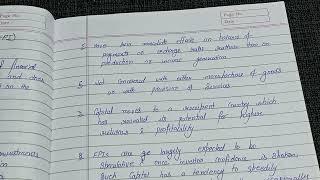 Page No.
Date
Page No.
Date
-PI)
5 have more immediate effects on balance of
payments or exchange rates rather than on
production or income generation
of financial
and does
on the
6 Not concerned with either manufacture of goods
or with provision of services
7 Capital moves to a recipient country which
has revealed its potential for higher
returns & profitability
investments
8 FPIs are largely expected to be
speculative & once investor confidence is shaken,
such capital has a tendency to speedily